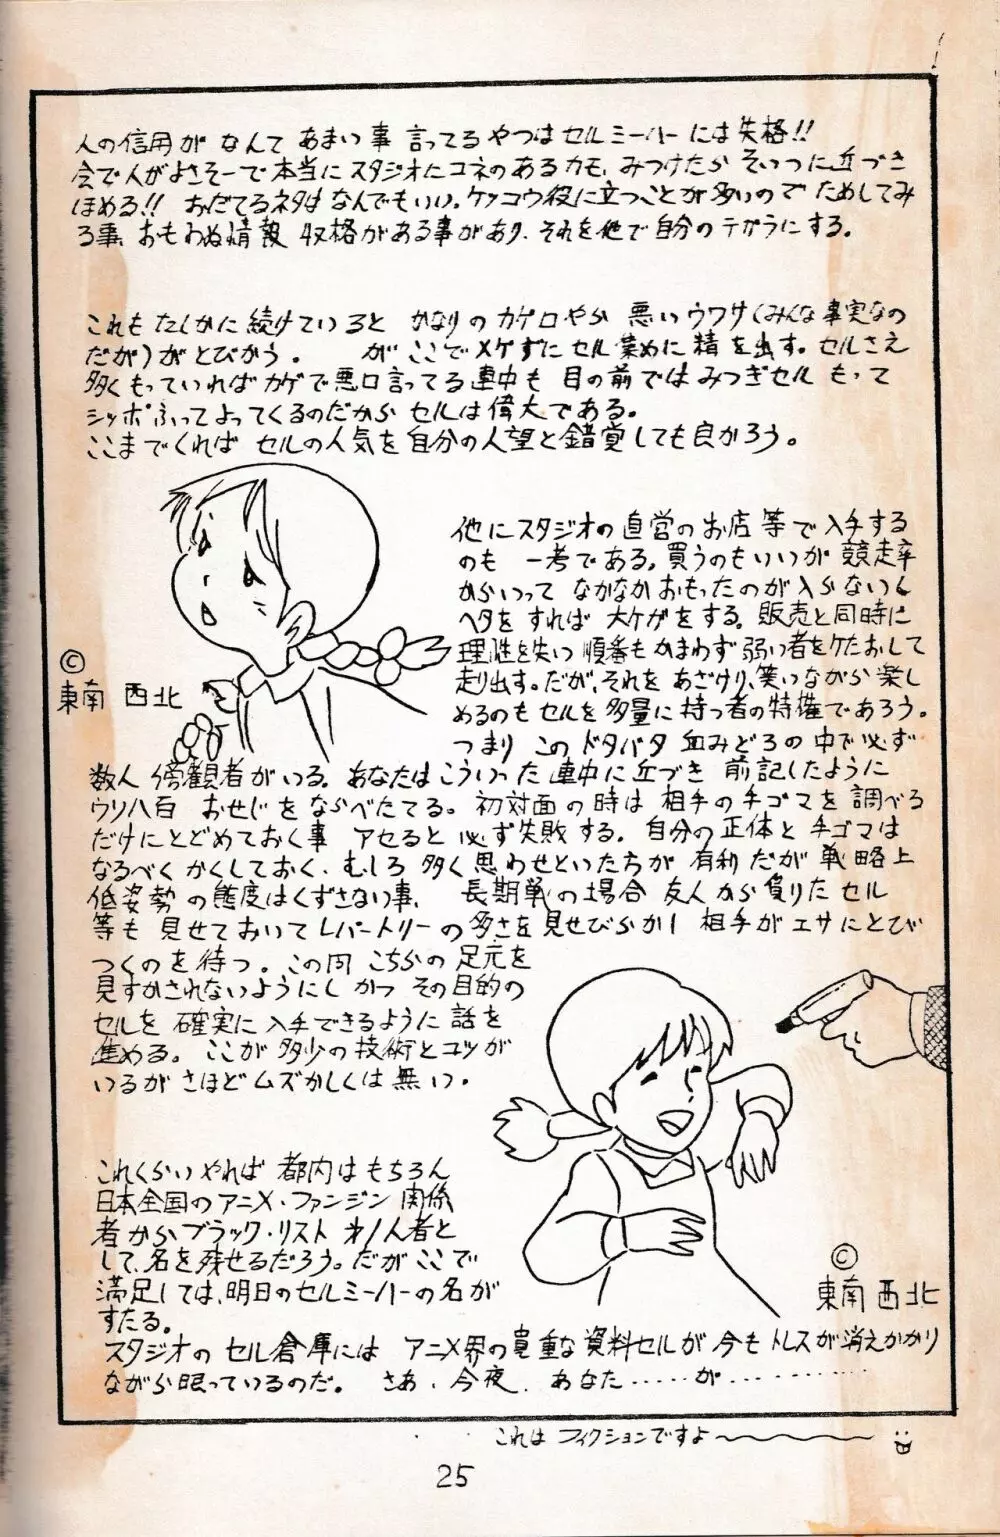 人の信用が なんて あまい事 言ってる やつは セルミーハーには 失格!!
会で人がよさそーで 本当に スタジオにコネのあるカモ、みつけたら そいつに近づき
ほめる!! おだてるネタは なんでもいい。ケッコウ役に立つことが多いので ためしてみ
る事、おもわぬ情報 収格がある事があり、それを他で自分のテガラにする。
これもたしかに 続けていると かなりの カゲロやら 悪いウワサ(みんな事実なの
だが)が とびかう。 が ここで メゲずに セル集めに 精を出す。セルさえ
多くもっていれば カゲで悪口言ってる連中も 目の前では みつぎセル もって
シッポふってよってくるのだから セルは偉大である。
ここまでくれば セルの人気を自分の人望と錯覚しても良かろう。
他にスタジオの直営のお店等で入手する
のも 一考である。買うのもいいが 競走率
からいって なかなかおもったのが入らないし
ヘタをすれば 大ケガをする。販売と同時に
理性を失い 順番もかまわず 弱い者をケたおして
走り出す。だが、それを あざけり、笑いながら 楽し
めるのも セルを 多量に 持つ者の特権であろう。
つまり この ドタバタ 血みどろの中で必ず
©
東南 西北
数人 傍観者がいる。あなたはこういった 連中に近づき 前記したように
ウソ八百 おせじを ならべたてる。初対面の時は 相手の手ゴマを 調べる
だけにとどめておく事 アセると 必ず失敗する。自分の正体と 手ゴマは
なるべく かくしておく、むしろ 多く思わせといた方が 有利だが 戦略上
低姿勢の態度はくずさない事、 長期戦の場合 友人から負りた セル
等も 見せておいて レパートリーの多さを見せびらかし 相手がエサにとび
つくのを待つ。この間 こちらの足元を
見すかされないようにし かつ その目的の
セルを 確実に入手できるように 話を
進める。ここが 多少の技術とコツが
いるが さほど ムズかしくは 無い。
これくらい やれば 都内はもちろん
日本全国のアニメ・ファンジン 関係
者から ブラック・リスト オ1人者と
して、名を残せるだろう。だが ここで
満足しては、明日のセルミーハーの名が
すたる。
©
東南 西北
スタジオの セル倉庫には アニメ界の貴重な 資料セルが 今も トレスが 消えかかり
ながら眠っているのだ。 さあ、今夜、あなた……が…………
これは フィクションですよ〜〜〜〜
25